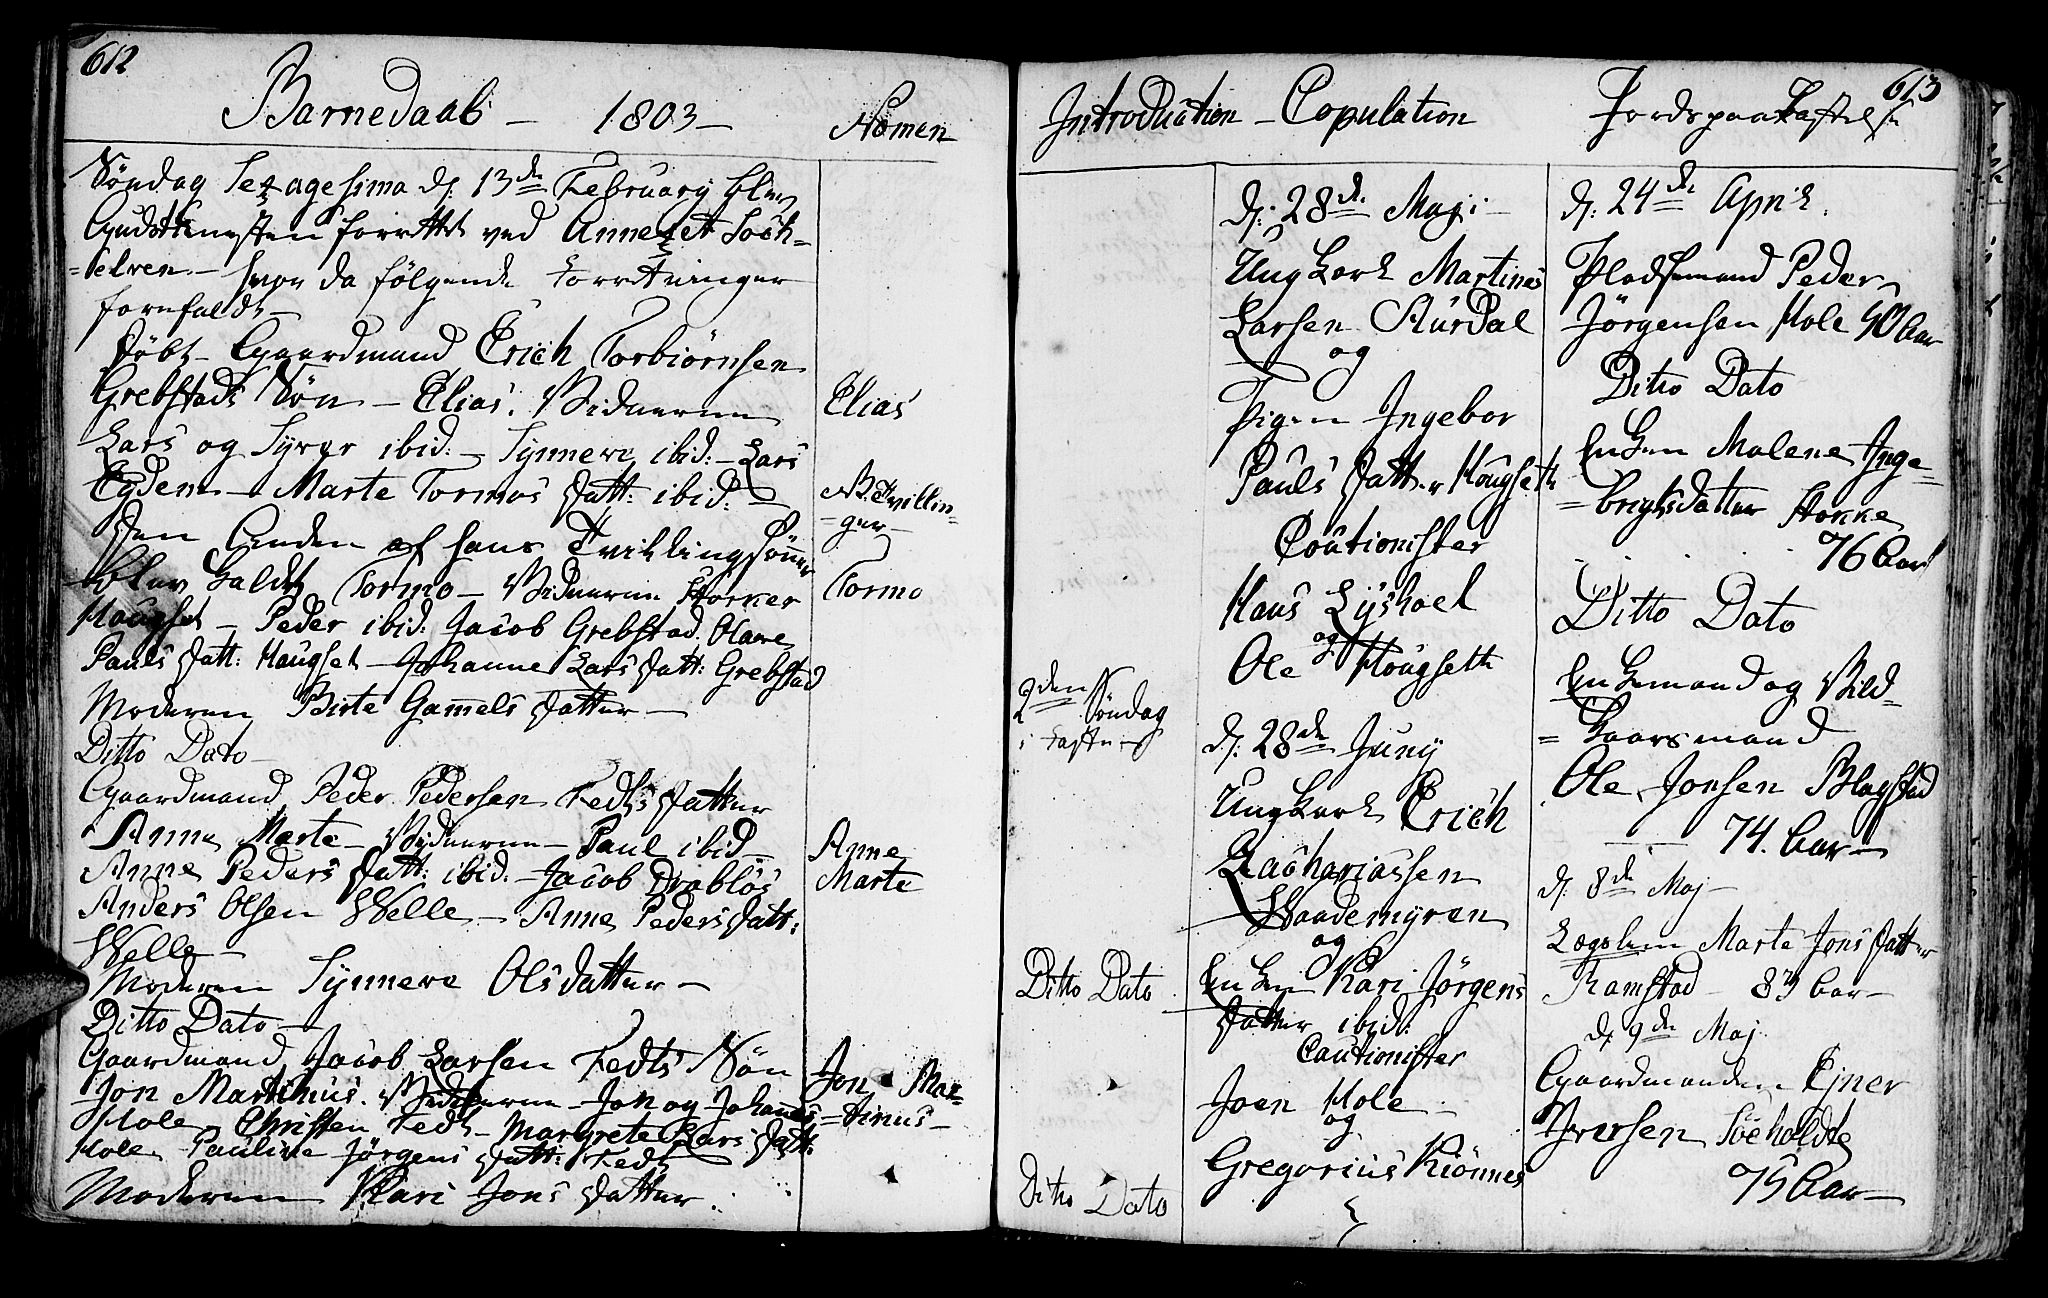 612
Barnedaab – 1803 –
Nomen
Søndag Sexagesima d. 13de February blev
Gudstienesten forrettet ved Annexet Soch=
=elven – hvor da følgende Forretninger
forefaldt –
Døbt – Gaardmand Erich Torbiørnsen
Grebstads Søn – Elias. Vidnerne
Lars og Syver ibid: – Synneve ibid: – Lars
Eyden – Marte Tormos Datt: ibid: –
Den Anden af hans Tvillingsønner
blev kaldt Tormo – Vidnerne Storker
Hougset – Peder ibid: Jacob Grebstad. Olave
Pauls Datt: Hougset – Johanne Lars Datt: Grebstad
Moderen Birte Gammels Datter –
Ditto Dato –
Gaardmand Peder Pedersen Fedts Datter
Anne Marte – Vidnerne – Paul ibid –
Anne Peders Datt: ibid. – Jacob Drabløs
Anders Olsen Welle – Anne Peders Datt:
Welle –
Moderen Synneve Olsdatter –
Ditto Dato –
Gaardmand Jacob Larsen Fedts Søn
Jon Martinus. Vidnerne – Jon og Johannes
Hole Christen Fedt – Margrete Lars Datt:
Hole Pauline Jørgens Datt: Fedt
Moderen Kari Jons Datter.
Elias
NB. Tvillin=
=ger –
Tormo
Anne
Marte
Jon Mar=
=tinus –
613
Introduction – Copulation
2den Søndag
i Fasten
Ditto Dato
Ditto Dato
d: 28de Maji –
Ung Karl Martines
Larsen Aurdal
og
Pigen Ingebor
Pauls Datter Hougseth
Coutionister
Hans Lyshoel
og
Ole Hougseth
d: 28de Juny
Ung Karl Erich
Zachariassen
Waademyren
og
Enken Kari Jørgens
Datter ibid:
Cautionister
Joen Hole –
og
Gregorius Kiønnes
Jordspaakastelse
d: 24de April.
Pladsemand Peder
Jørgensen Hole 90 Aar
Ditto Dato
Enken Malene Inge=
=brigtsdatter Stokke
76 Aar
Ditto Dato
Enkemand og Vild=
=kaarsmand
Ole Jonsen Blagstad
74. Aar –
d: 8de Maj –
Lægslem Marte Jons Datter
Ramstad – 83 Aar –
d. 9de Maj
Gaardmanden Ejner
Iversen Søeholdte
75 Aar –